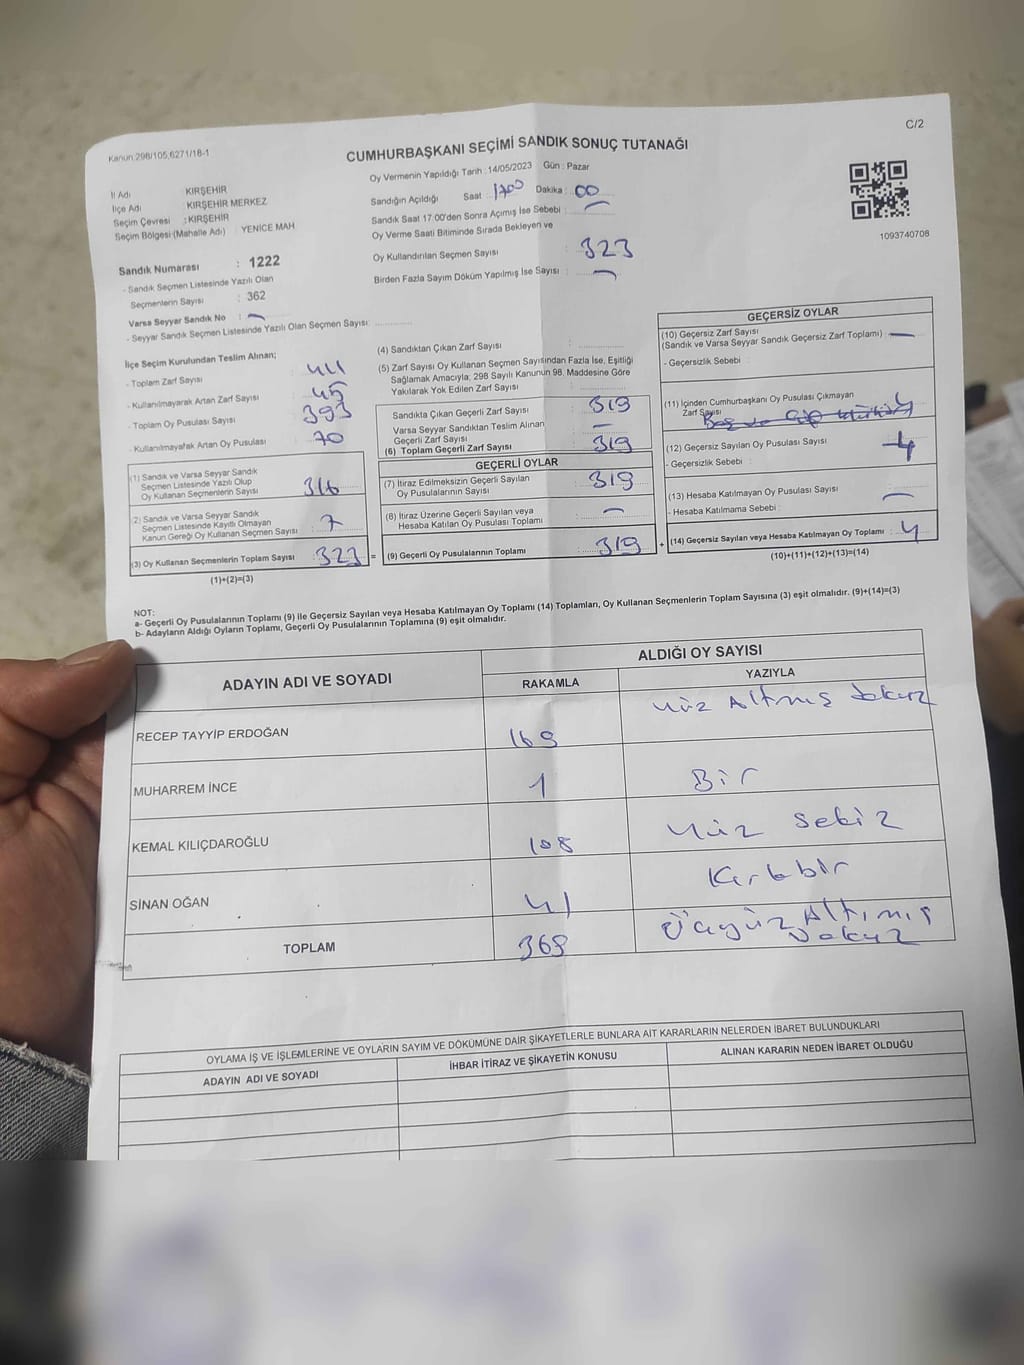 Kanun:298/105,6271/18-1
C/2
CUMHURBAŞKANI SEÇİMİ SANDIK SONUÇ TUTANAĞI
Oy Vermenin Yapıldığı Tarih : 14/05/2023 Gün : Pazar
İl Adı KIRŞEHİR
İlçe Adı : KIRŞEHİR MERKEZ
Seçim Çevresi : KIRŞEHİR
Seçim Bölgesi (Mahalle Adı) YENİCE MAH
Sandık Numarası : 1222
- Sandık Seçmen Listesinde Yazılı Olan
Seçmenlerin Sayısı : 362
Varsa Seyyar Sandık No : —
- Seyyar Sandık Seçmen Listesinde Yazılı Olan Seçmen Sayısı:
Sandığın Açıldığı Saat 1700 Dakika : 00
Sandık Saat 17:00'den Sonra Açımış İse Sebebi : —
Oy Verme Saati Bitiminde Sırada Bekleyen ve
Oy Kullandırılan Seçmen Sayısı : 323
Birden Fazla Sayım Döküm Yapılmış İse Sayısı : —
1093740708
İlçe Seçim Kurulundan Teslim Alınan;
- Toplam Zarf Sayısı 441
- Kullanılmayarak Artan Zarf Sayısı 45
- Toplam Oy Pusulası Sayısı 393
- Kullanılmayarak Artan Oy Pusulası 70
(1) Sandık ve Varsa Seyyar Sandık
Seçmen Listesinde Yazılı Olup
Oy Kullanan Seçmenlerin Sayısı 316
(2) Sandık ve Varsa Seyyar Sandık
Seçmen Listesinde Kayıtlı Olmayan
Kanun Gereği Oy Kullanan Seçmen Sayısı 7
(3) Oy Kullanan Seçmenlerin Toplam Sayısı 323 =
(1)+(2)=(3)
(4) Sandıktan Çıkan Zarf Sayısı :
(5) Zarf Sayısı Oy Kullanan Seçmen Sayısından Fazla İse, Eşitliği
Sağlamak Amacıyla; 298 Sayılı Kanunun 98. Maddesine Göre
Yakılarak Yok Edilen Zarf Sayısı :
Sandıkta Çıkan Geçerli Zarf Sayısı 319
Varsa Seyyar Sandıktan Teslim Alınan
Geçerli Zarf Sayısı —
(6) Toplam Geçerli Zarf Sayısı 319
GEÇERLİ OYLAR
(7) İtiraz Edilmeksizin Geçerli Sayılan
Oy Pusulalarının Sayısı : 319
(8) İtiraz Üzerine Geçerli Sayılan veya
Hesaba Katılan Oy Pusulası Toplamı : —
(9) Geçerli Oy Pusulalarının Toplamı 319 +
GEÇERSİZ OYLAR
(10) Geçersiz Zarf Sayısı
(Sandık ve Varsa Seyyar Sandık Geçersiz Zarf Toplamı) : —
- Geçersizlik Sebebi :
(11) İçinden Cumhurbaşkanı Oy Pusulası Çıkmayan
Zarf Sayısı
(12) Geçersiz Sayılan Oy Pusulası Sayısı : 4
- Geçersizlik Sebebi :
(13) Hesaba Katılmayan Oy Pusulası Sayısı : —
- Hesaba Katılmama Sebebi :
(14) Geçersiz Sayılan veya Hesaba Katılmayan Oy Toplamı : 4
(10)+(11)+(12)+(13)=(14)
NOT:
a- Geçerli Oy Pusulalarının Toplamı (9) ile Geçersiz Sayılan veya Hesaba Katılmayan Oy Toplamı (14) Toplamları, Oy Kullanan Seçmenlerin Toplam Sayısına (3) eşit olmalıdır. (9)+(14)=(3)
b- Adayların Aldığı Oyların Toplamı, Geçerli Oy Pusulalarının Toplamına (9) eşit olmalıdır.
ADAYIN ADI VE SOYADI ALDIĞI OY SAYISI
RAKAMLA YAZIYLA
RECEP TAYYİP ERDOĞAN 169 Yüz Altmış dokuz
MUHARREM İNCE 1 Bir
KEMAL KILIÇDAROĞLU 108 Yüz Sekiz
SİNAN OĞAN 41 Kırkbir
TOPLAM 369 Üçyüz Altmış Dokuz
OYLAMA İŞ VE İŞLEMLERİNE VE OYLARIN SAYIM VE DÖKÜMÜNE DAİR ŞİKAYETLERLE BUNLARA AİT KARARLARIN NELERDEN İBARET BULUNDUKLARI
ADAYIN ADI VE SOYADI İHBAR İTİRAZ VE ŞİKAYETİN KONUSU ALINAN KARARIN NEDEN İBARET OLDUĞU